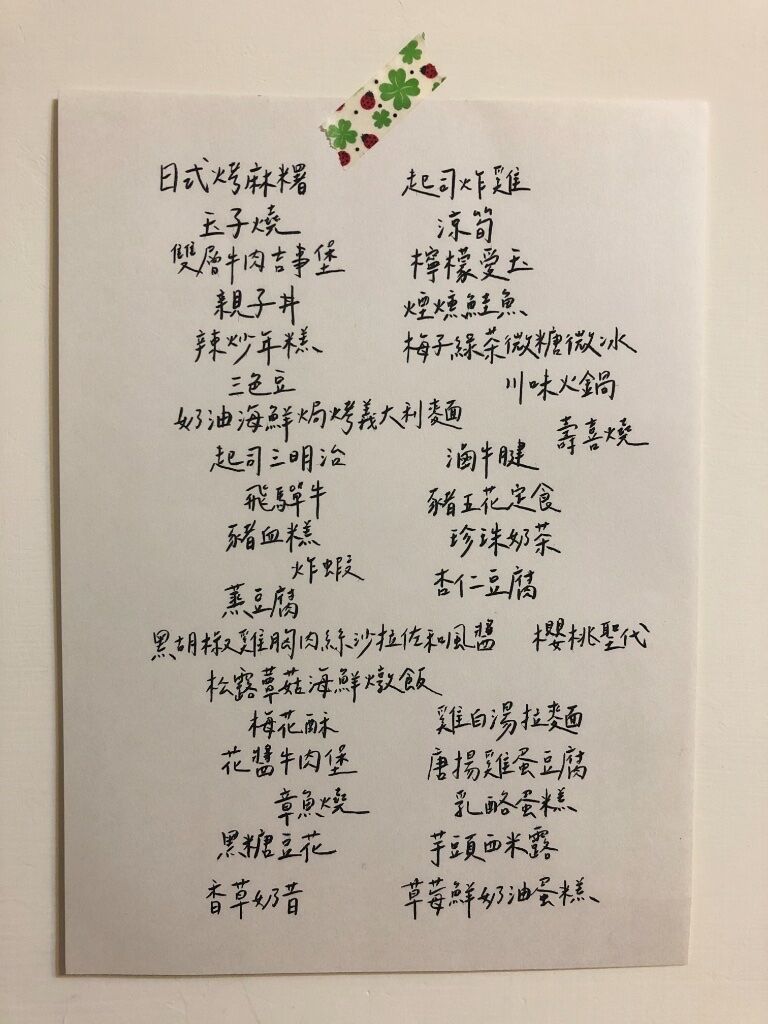 日式烤麻糬
玉子燒
雙層牛肉吉事堡
親子丼
辣炒年糕
三色豆
奶油海鮮焗烤義大利麵
起司三明治
飛驒牛
豬血糕
炸蝦
蒸豆腐
黑胡椒雞胸肉絲沙拉佐和風醬
松露蕈菇海鮮燉飯
梅花酥
花醬牛肉堡
章魚燒
黑糖豆花
香草奶昔
起司炸雞
涼筍
檸檬愛玉
煙燻鮭魚
梅子綠茶微糖微冰
川味火鍋
壽喜燒
滷牛腱
豬五花定食
珍珠奶茶
杏仁豆腐
櫻桃聖代
雞白湯拉麵
唐揚雞蛋豆腐
乳酪蛋糕
芋頭西米露
草莓鮮奶油蛋糕